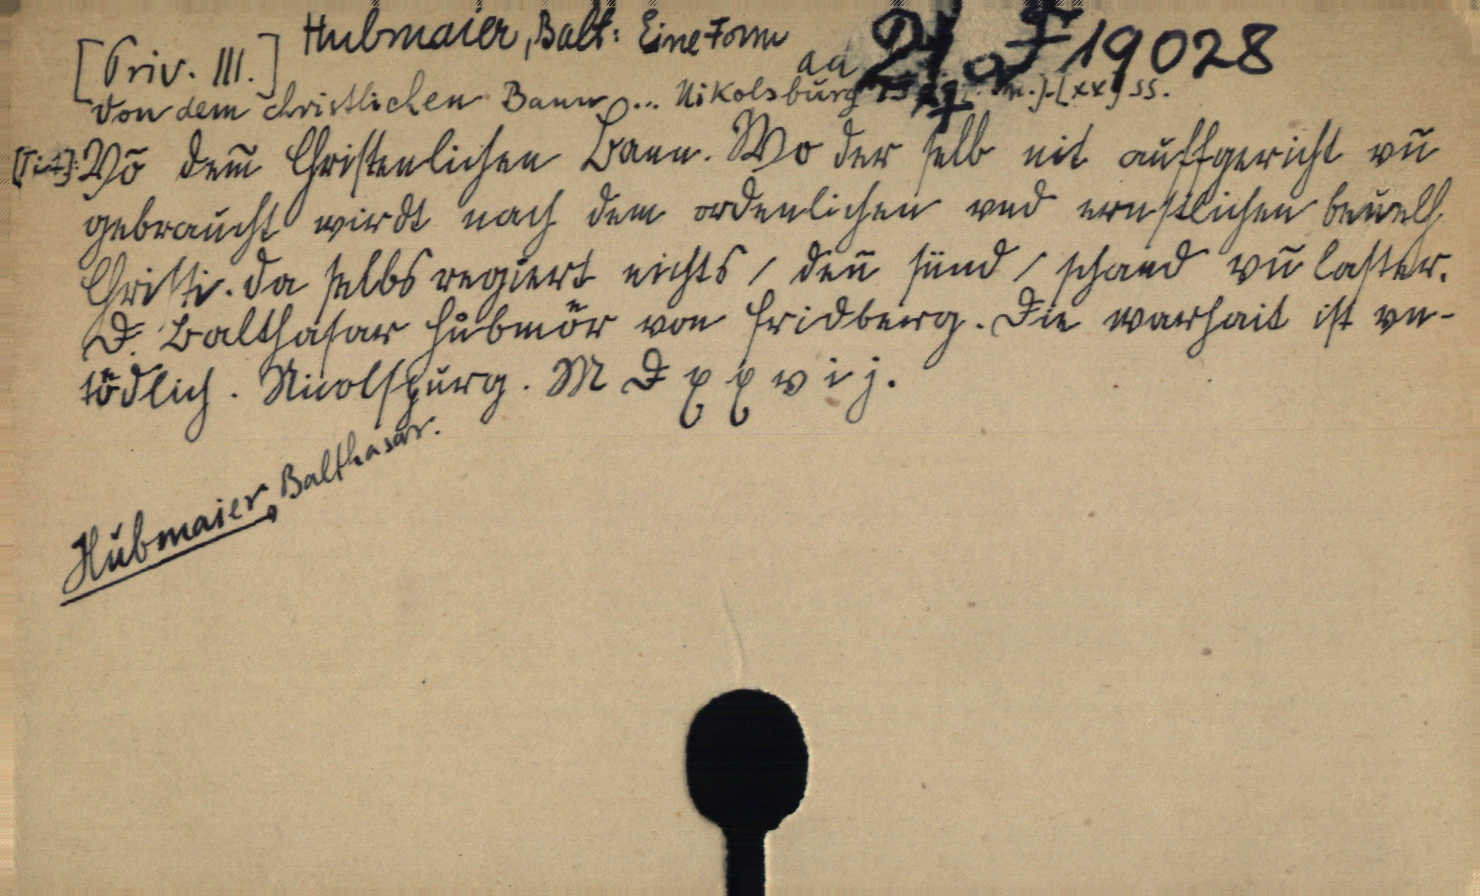 [Priv. III.] Hubmaier, Balt: Eine Form 19028
ad
Von dem christlichen Bann ... Nikolsburg [xx] ss.
[Tit]: Võ dem̃ Christenlichen Bann. Wo der selb nit auffgericht vñ
gebraucht wirdt nach dem ordenlichen vnd ernstlichen beuelh
Christi. da selbs regiert nichts / deñ sünd / schand vñ laster.
D. Balthasar Hůbmör von Fridberg. Die warhait ist vn-
tödlich. Nicolspurg. M D x x v i j.
Hubmaier, Balthasar.